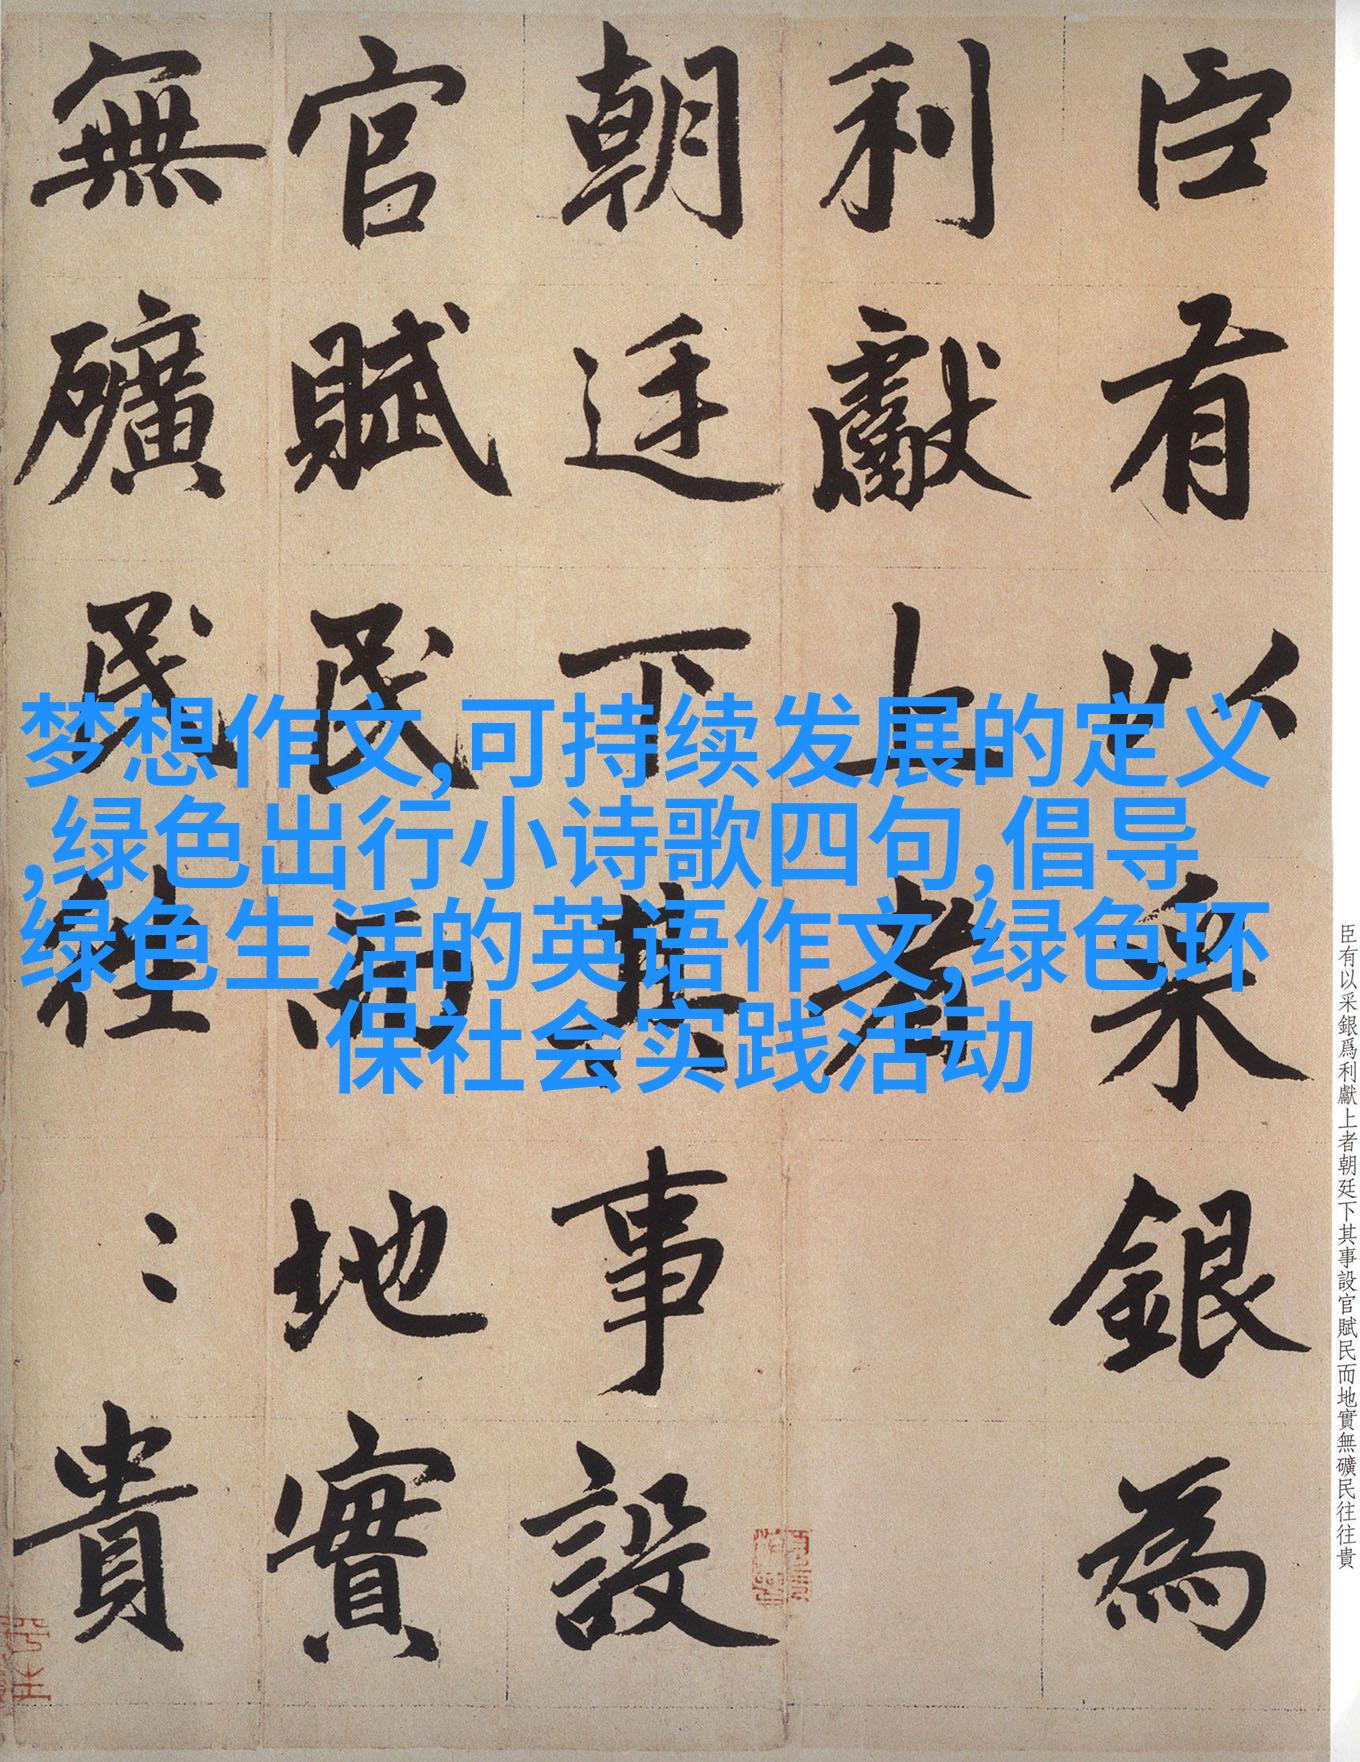 臣有以采銀為
利獻上者
朝廷下其事設
官賦民而地實
無礦民往〻貴
梦想作文,可持续发展的定义
,绿色出行小诗歌四句,倡导
绿色生活的英语作文,绿色环
保社会实践活动
臣有以采銀爲利獻上者朝廷下其事設官賦民而地實無礦民往往貴